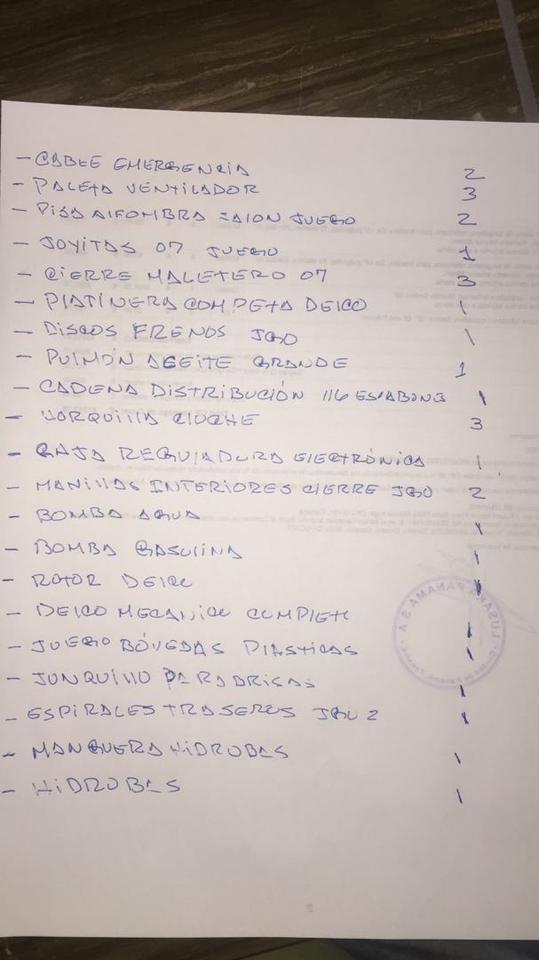 - CABLE EMERGENCIA 2
- PALETA VENTILADOR 3
- PISA ALFOMBRA SALON JUEGO 2
- JOYITAS 07 JUEGO 1
- CIERRE MALETERO 07 3
- PLATINERA COMPETA DELCO 1
- DISCOS FRENOS JGO 1
- PULMÓN ACEITE GRANDE 1
- CADENA DISTRIBUCIÓN 116 ESLABONS 1
- HORQUILLA CLUCHE 3
- CAJA REGULADORA ELECTRÓNICA 1
- MANILLAS INTERIORES CIERRE JGO 2
- BOMBA AGUA 1
- BOMBA GASOLINA 1
- ROTOR DELCO 1
- DELCO MECANICO COMPLETO 1
- JUEGO BÓVEDAS PLASTICAS 1
- JUNQUILLO PARABRISAS 1
- ESPIRALES TRASEROS JGO 2 1
- MANGUERA HIDROBAS 1
- HIDROBAS 1
PANAMA S.A